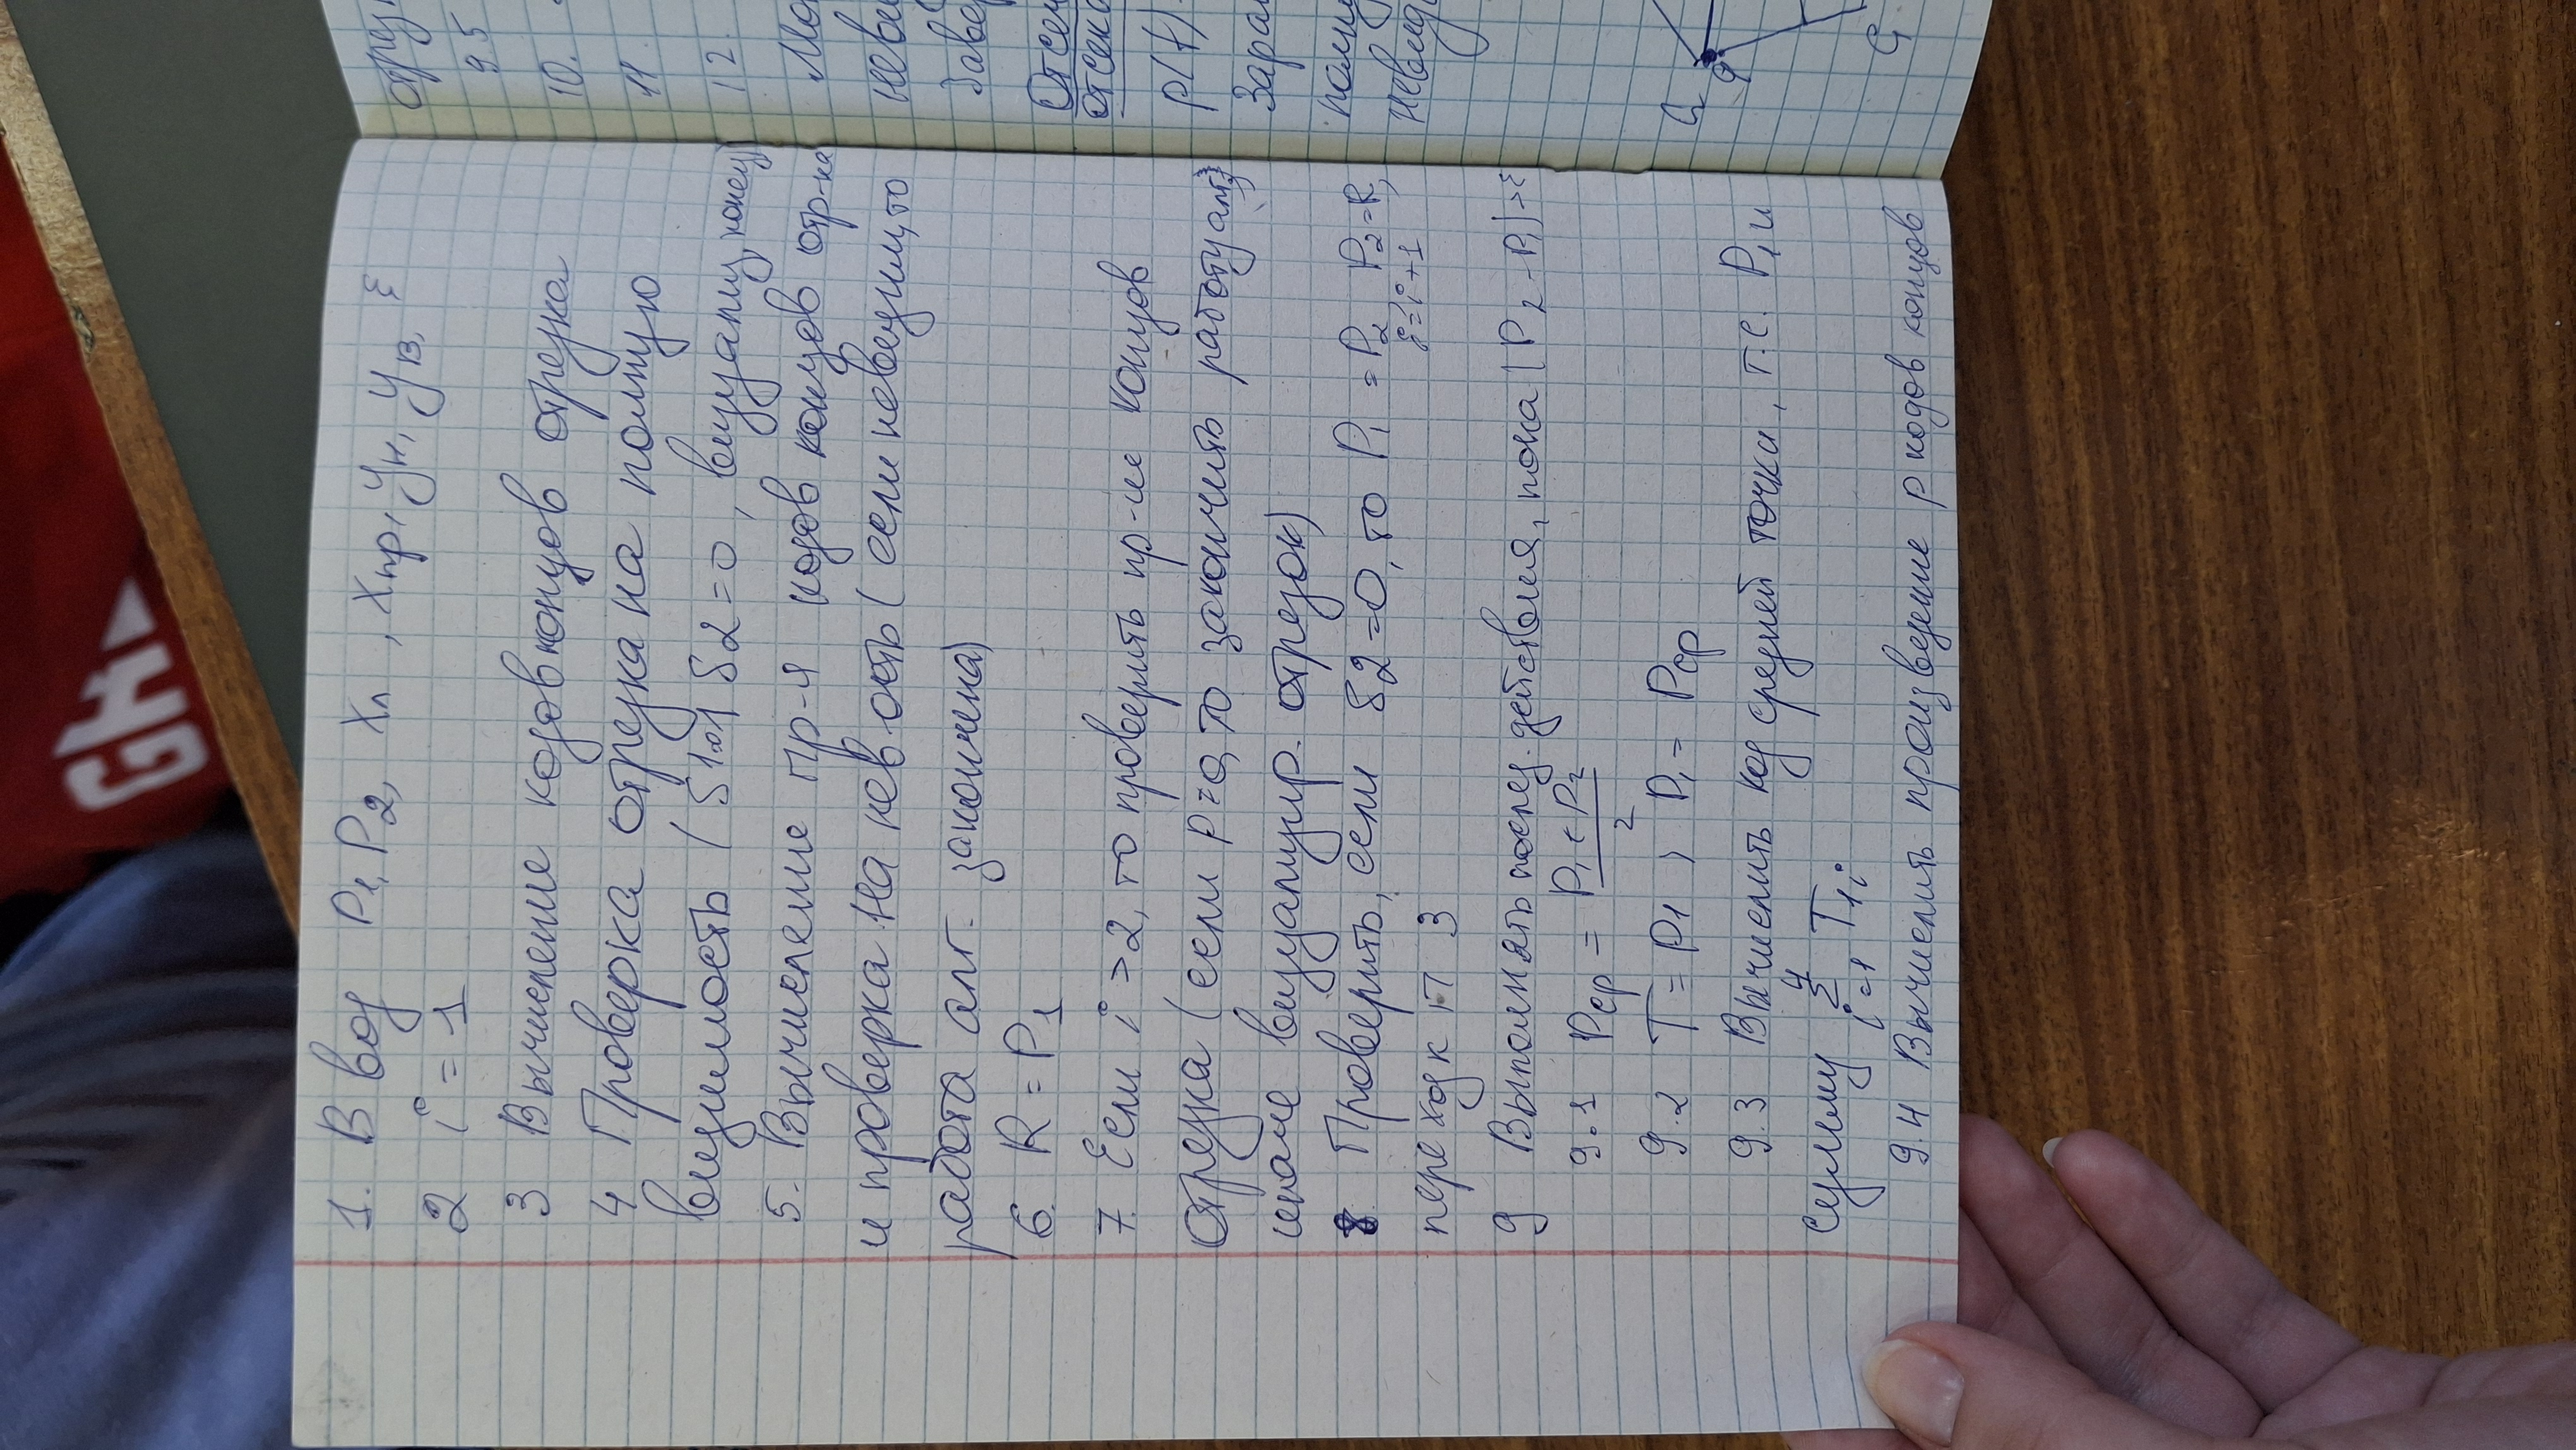 GK
1. Ввод P1, P2, Xл, Xпр, Yн, Yв, ε
2 i = 1
3 Вычисление кодов концов отрезка
4 Проверка отрезка на полную
видимость ( S1 S2=0, визуализ, конец)
5. Вычисление пр-я кодов концов отр-ка
и проверка на нев-ость ( если невидим, то
работа алг. закончена)
6. R = P1
7. Если i > 2, то проверить пр-ие концов
отрезка (если p≠0, то закончить работу алг,
иначе визуализир. отрезок)
8. Проверить, если S2=0, то P1 = P2, P2=R,
i=i+1
переход к п 3
9 Выполнять послед. действия, пока |P2 - P1|>ε
9.1 Pср = P1 + P2 / 2
9.2 T = P1 ; P1 = Pср
9.3 Вычислить код средней точки, т.е. P1 и
сумму 4 Σ i=1 T1i
9.4 Вычислить произведение p кодов концов
9.5
10.
11
12.
p(t)